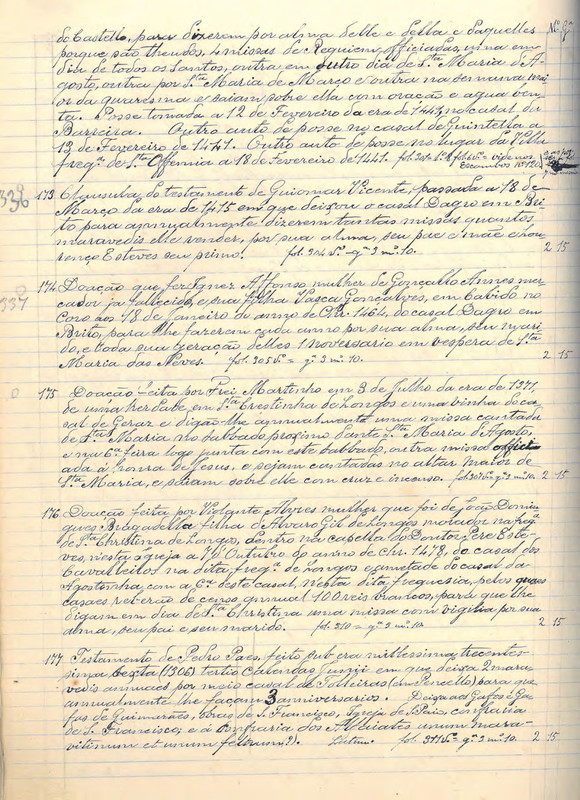 Nº Gª
do Castello, para dizerem por alma delle e della e daquelles
porque são theudos, 4 missas de Requiem officiadas, uma em
dia de todos os Santos, outra em outro dia de Sta Maria d'A-
gosto, outra por Sta Maria de Março e outra na semana mai-
or da quaresma e saiam sobre ella com oração e agua ben-
ta. Posse tomada a 12 de Fevereiro da era de 1441 no casal da
Barreira. Outro auto de posse no casal de Quintella a
13 de Fevereiro de 1441. Outro auto de posse no lugar da Villa
fregª de Sta Offemia a 18 de Fevereiro de 1441. fol. 304
vide nos
Escambos nº 120
336
173 Clausula do testamento de Guiomar Vicente, passada a 18 de
Março da era de 1415 em que deixou o casal Dagro em Bri-
to para annualmente dizerem tantas missas quantos
maravedis elle render, por sua alma, seu pae e mãe e Lou-
renço Esteves seu primo. fol. 304 vº = gª 3 mº 10. 2 15
337
174 Doação que fez Ignez Affonso mulher de Gonçallo Annes mer-
cador ja fallecido, e sua filha Vasca Gonçalves, em Cabido no
Coro aos 18 de Janeiro do anno de Chr. 1464, do casal Dagro em
Brito, para lhe fazerem cada anno por sua alma, seu mari-
do, e toda sua geração delles 1 noversario em vespera de Sta
Maria das Neves. fol. 305 vº = gª 3 mº 10. 2 15
175 Doação feita por Frei Martinho em 3 de Julho da era de 1371,
de uma herdade em Sta Crestinha de Longos e uma vinha do ca-
sal de Geraz e digão-lhe annualmente uma missa cantada
de Sta Maria no sabbado proximo dante Sta Maria d'Agosto,
e na 6ª feira logo junta com este sabbado, outra missa offici-
ada á honra de Jesus, e sejam cantadas no altar maior de
Sta Maria, e saiam sobre elle com cruz e incenso. fol. 307 vº = gª 3 mº 10. 2 15
176 Doação feita por Violante Alvres mulher que foi de João Domin-
gues Bragadella filha d'Alvaro Gil de Longos morador na fregª
de Sta Christina de Longos, dentro na capella do Doutor Pere Este-
ves, nesta Igreja a 14 Outubro do anno de Chr. 1478, do casal dos
Carvalhitos na dita fregª de Longos e ametade do casal da
Agostinha, com a Cª deste casal, nesta dita freguesia, pelos quaes
casaes receberão de censo annual 100 reis brancos, para que lhe
digam em dia de Sta Christina uma missa com vigilia por sua
alma, seu pai e seu marido. fol. 310 = gª 3 mº 10. 2 15
177 Testamento de Pedro Paes, feito sub era millessima trecentes-
sima sexta (1306) tertio Calendas Junii em que deixa 2 mara-
vedis annuaes por meio casal de
annualmente lhe façam 3 anniversarios. Deixa aos Gafos e Ga-
fas de Guimarães, obras de S. Francisco, Igreja de S. Paio, confraria
de S. Francisco; e á Confraria dos Alfaiates unum mara-
vitinum et unum feltrum (?). Latim. fol. 311 vº = gª 3 mº 10. 2 15